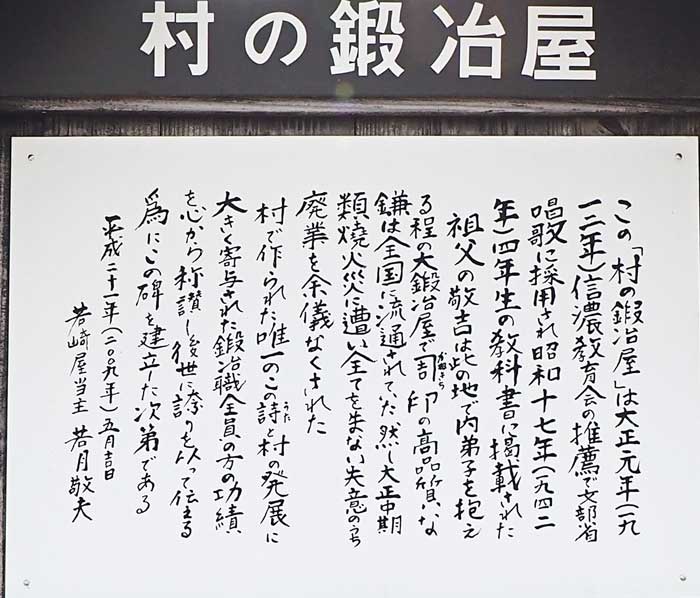 村の鍛冶屋
この「村の鍛冶屋」は大正元年(一九
一二年)信濃教育会の推薦で文部省
唱歌に採用され昭和十七年(一九四二
年)四年生の教科書に掲載された
祖父の敬吉は此の地で内弟子を抱え
る程の大鍛冶屋で司印の高品質な
鎌は全国に流通されていた然し大正中期
類焼火災に遭い全てを失ない失意の
廃業を余儀なくされた
村で作られた唯一のこの詩と村の発展に
うた
大きく寄与された鍛冶職全員の方の功績
を心から称讃し後世に誇りを以って伝える
為にこの碑を建立した次第である
平成二十一年(二〇〇九年)五月吉日
若崎屋当主 若月敬夫